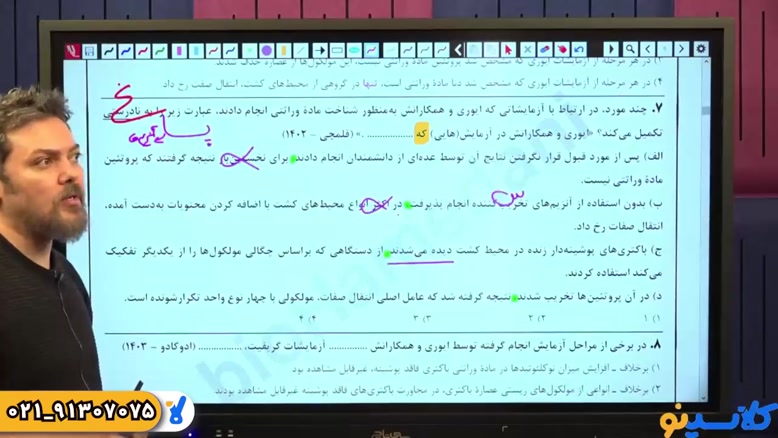 ۱) در هر مرحله از آزمایشات ایوری که مشخص شد پروتئین مادهٔ وراثتی نیست، این مولکول‌ها از عصاره حذف شدند
۴) در هر مرحله از آزمایشات ایوری که مشخص شد دنا مادهٔ وراثتی است، تنها در گروهی از محیط‌های کشت، انتقال صفات رخ داد.
۷. چند مورد، در ارتباط با آزمایشاتی که ایوری و همکارانش به‌منظور شناخت مادهٔ وراثتی انجام دادند، عبارت زیر را به نادرستی
تکمیل می‌کند؟ «ایوری و همکارانش در آزمایش(هایی) که .................» (قلمچی – ۱۴۰۲)
الف) پس از مورد قبول قرار نگرفتن نتایج آن توسط عده‌ای از دانشمندان انجام دادند، برای نخستین‌بار نتیجه گرفتند که پروتئین
مادهٔ وراثتی نیست.
ب) بدون استفاده از آنزیم‌های تخریب کننده انجام پذیرفت، در همه انواع محیط‌های کشت با اضافه کردن محتویات به‌دست آمده،
انتقال صفات رخ داد.
ج) باکتری‌های پوشینه‌دار زنده در محیط کشت دیده می‌شدند، از دستگاهی که براساس چگالی مولکول‌ها را از یکدیگر تفکیک
می‌کند استفاده کردند.
د) در آن پروتئین‌ها تخریب شدند، نتیجه گرفته شد که عامل اصلی انتقال صفات، مولکولی با چهار نوع واحد تکرارشونده است.
۱) ۱ ۲) ۲ ۳) ۳ ۴) ۴
۸. در برخی از مراحل آزمایش انجام گرفته توسط ایوری و همکارانش ................. آزمایشات گریفیت، ................. (ادوکادو – ۱۴۰۳)
۱) برخلاف – افزایش میزان نوکلئوتیدها در مادهٔ وراثتی باکتری فاقد پوشینه، غیرقابل مشاهده بود
۲) برخلاف – انواعی از مولکول‌های زیستی عصارهٔ باکتری، در مجاورت باکتری‌های فاقد پوشینه غیرقابل مشاهده بودند
۰۲۱_۹۱۳۰۷۰۷۵
کلاسینو